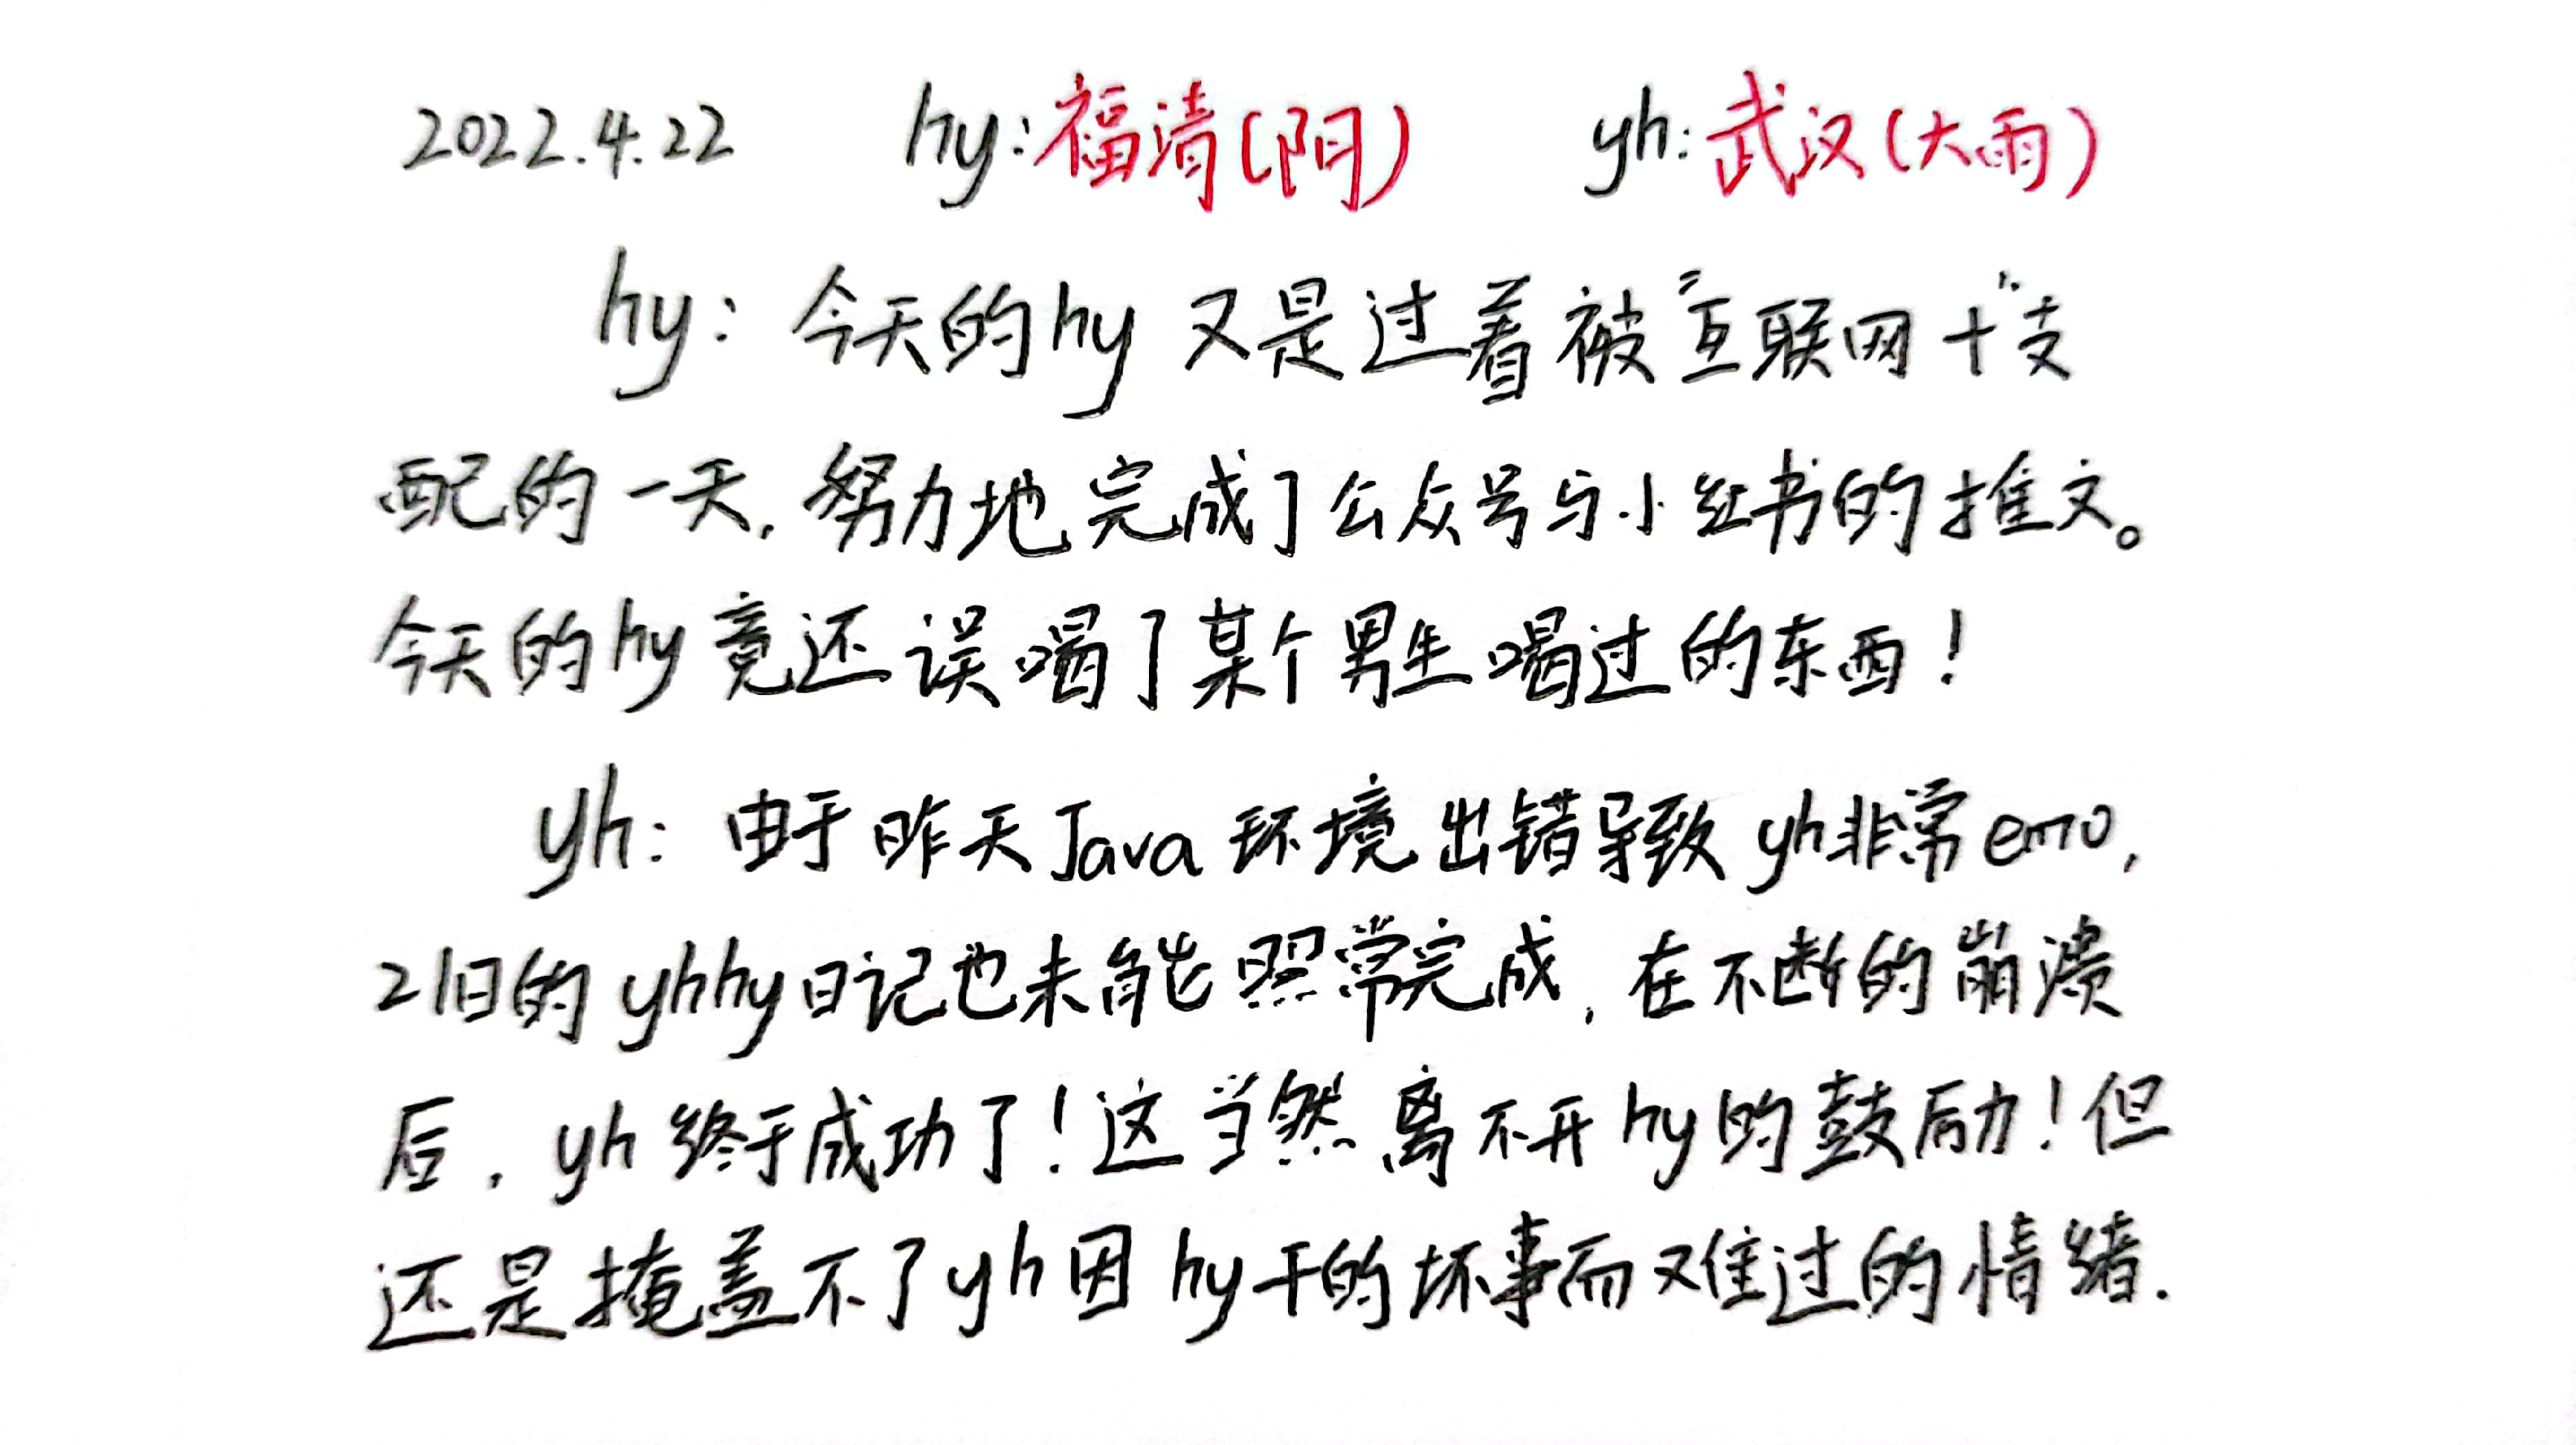 2022.4.22 hy:福清(阴) yh:武汉(大雨)
hy：今天的hy又是过着被"互联网+"支
配的一天，努力地完成了公众号与小红书的推文。
今天的hy竟还误喝了某个男生喝过的东西！
yh：由于昨天Java环境出错导致yh非常emo，
21日的yhhy日记也未能照常完成，在不断的崩溃
后，yh终于成功了！这当然离不开hy的鼓励！但
还是掩盖不了yh因hy干的坏事而难过的情绪.